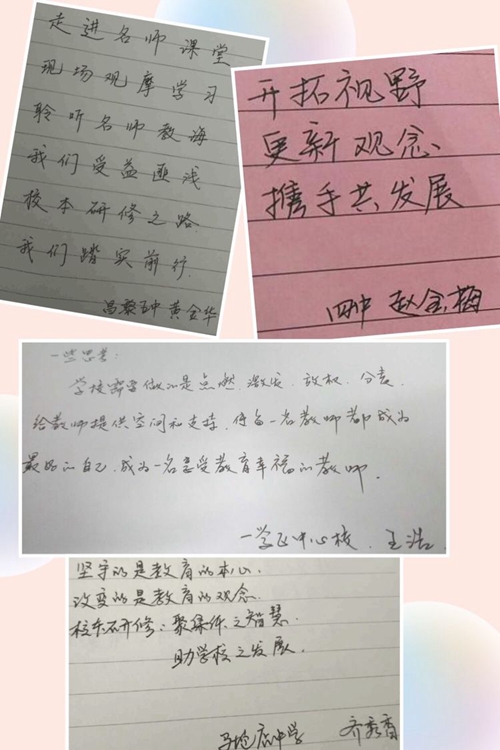 走进名师课堂
现场观摩学习
聆听名师教诲
我们受益匪浅
校本研修之路
我们踏实前行
昌黎五中 黄金华
开拓视野
更新观念、
携手共发展
四中 赵金梅
一些思考:
学校需要做的是点燃、激发、放权、分责、
给教师提供空间和支持,使每一名教师都成为
最好的自己,成为一名享受教育幸福的教师。
一学区中心校、王浩
坚守的是教育的本心、
改变的是教育的观念
校本研修:聚集体之智慧
助学校之发展.
马坨店中学 齐秀香